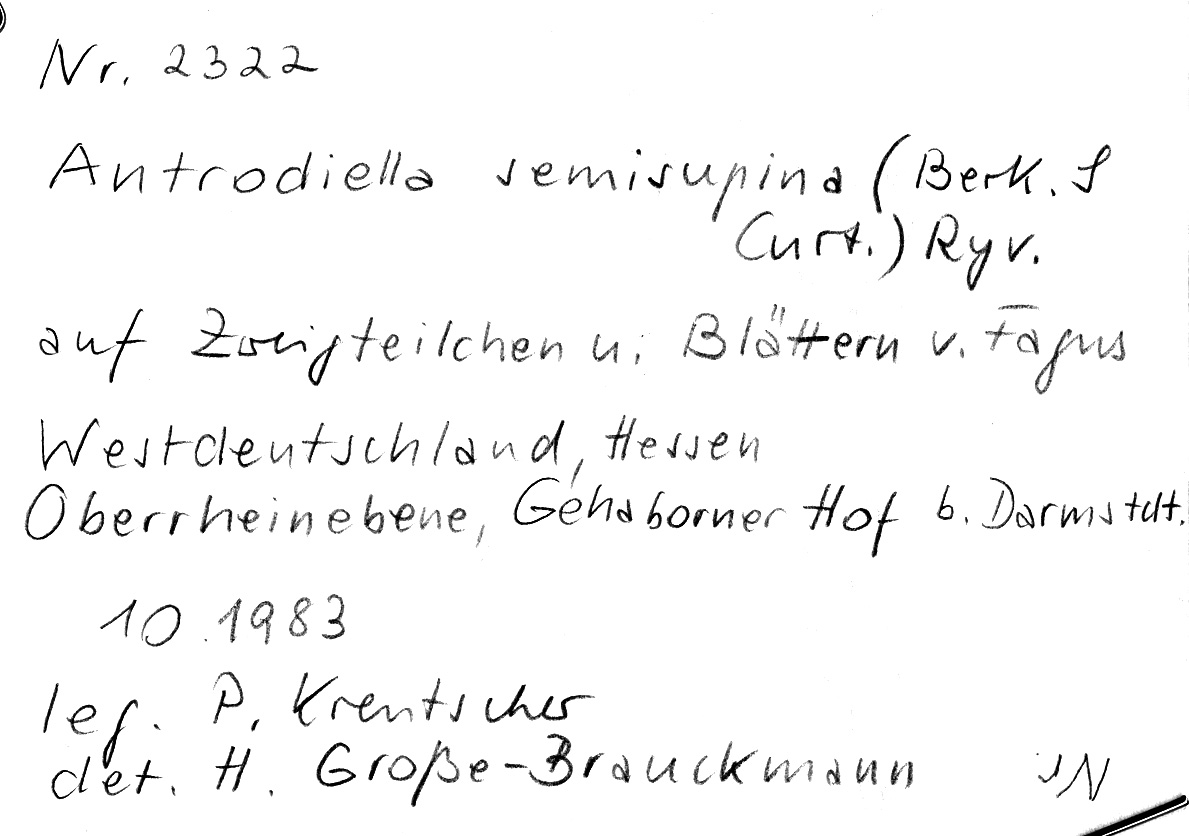 Nr. 2322
Antrodiella semisupina (Berk. &
Curt.) Ryv.
auf Zweigteilchen u. Blättern v. Fagus
Westdeutschland, Hessen
Oberrheinebene, Gehaborner Hof b. Darmstdt.
10.1983
leg. P. Krentscher
det. H. Große-Brauckmann